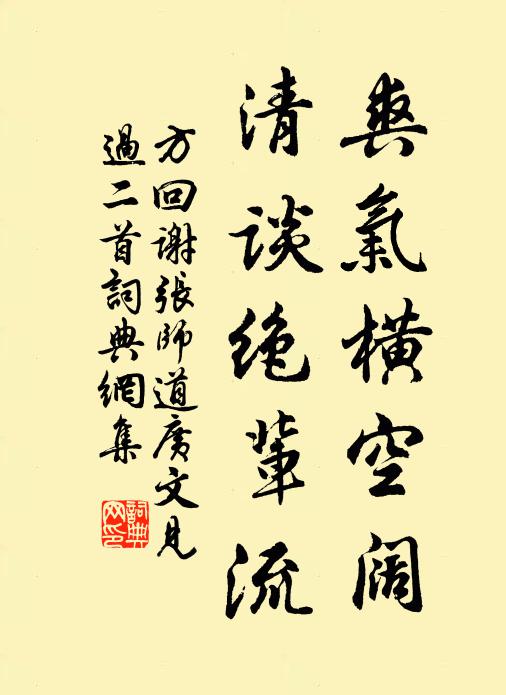 爽氣橫空闊
清談絶輩流
方回謝張師道廣文見
過二首詞典網集
詞典
网印